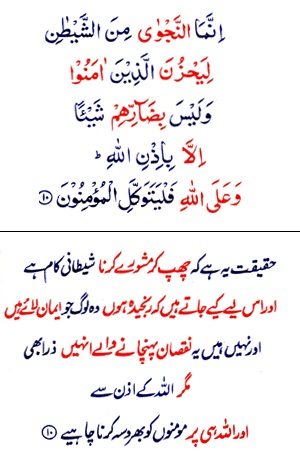 اِنَّمَا النَّجْوٰى مِنَ الشَّيْطٰنِ
لِيَحْزُنَ الَّذِيْنَ اٰمَنُوْا
وَلَيْسَ بِضَآرِّهِمْ شَيْـًٔا
اِلَّا بِاِذْنِ اللّٰهِ ؕ
وَعَلَى اللّٰهِ فَلْيَتَوَكَّلِ الْمُؤْمِنُوْنَ ۝۱۰
حقیقت یہ ہے کہ چھپ کر مشورے کرنا شیطانی کام ہے
اور اس لیے کیے جاتے ہیں کہ رنجیدہ ہوں وہ لوگ جو ایمان لائے ہیں
اور نہیں ہیں یہ نقصان پہنچانے والے انہیں ذرا بھی
مگر اللہ کے اذن سے
اور اللہ ہی پر مومنوں کو بھروسہ کرنا چاہیے ۝۱۰